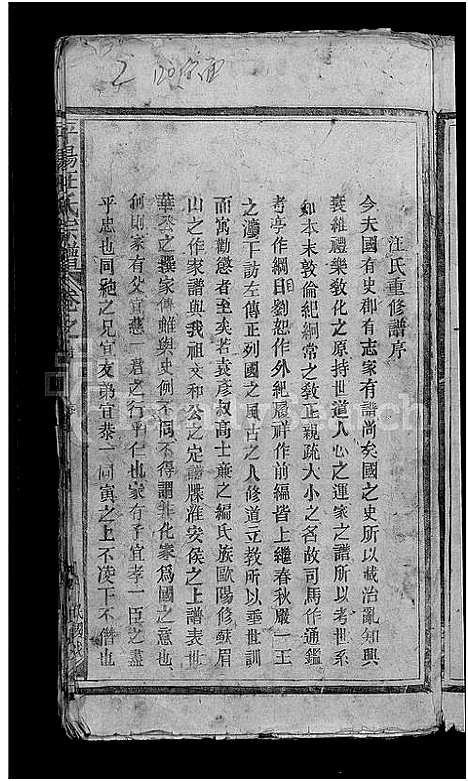 汪氏重修譜序
今夫國有史郡有志家有譜尚矣國之史所以載治亂知興
衰維禮樂敎化之原持世道人心之運家之譜所以考世系
知本末敦倫紀綱常之敎正親疏大小之名故司馬作通鑑
考亭作綱目劉恕作外紀履祥作前編皆上繼春秋嚴一王
之漢下訪左傳正列國之風古之人修道立敎所以垂世訓
而寓勸懲者至矣若袁彥叔高士廉之編氏族歐陽修蘇眉
山之作家譜與我祖文和公之定譜牒淮安侯之上譜表世
華公之譔家傳雖與史例不同不得謂非化家爲國之意也
何則家有父宜慈一君之行乎仁也家有子宜孝一臣之盡
乎忠也同胞之兄宜友弟宜恭一同寅之上不凌下不僭也
平陽汪氏宗譜
卷之首